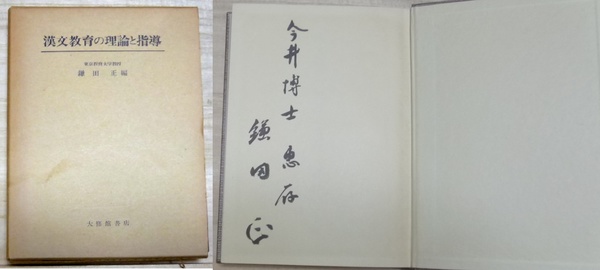 漢文教育の理論と指導
東京教育大学教授
鎌田 正編
大修館書店
今井博士 惠存
鎌田 正